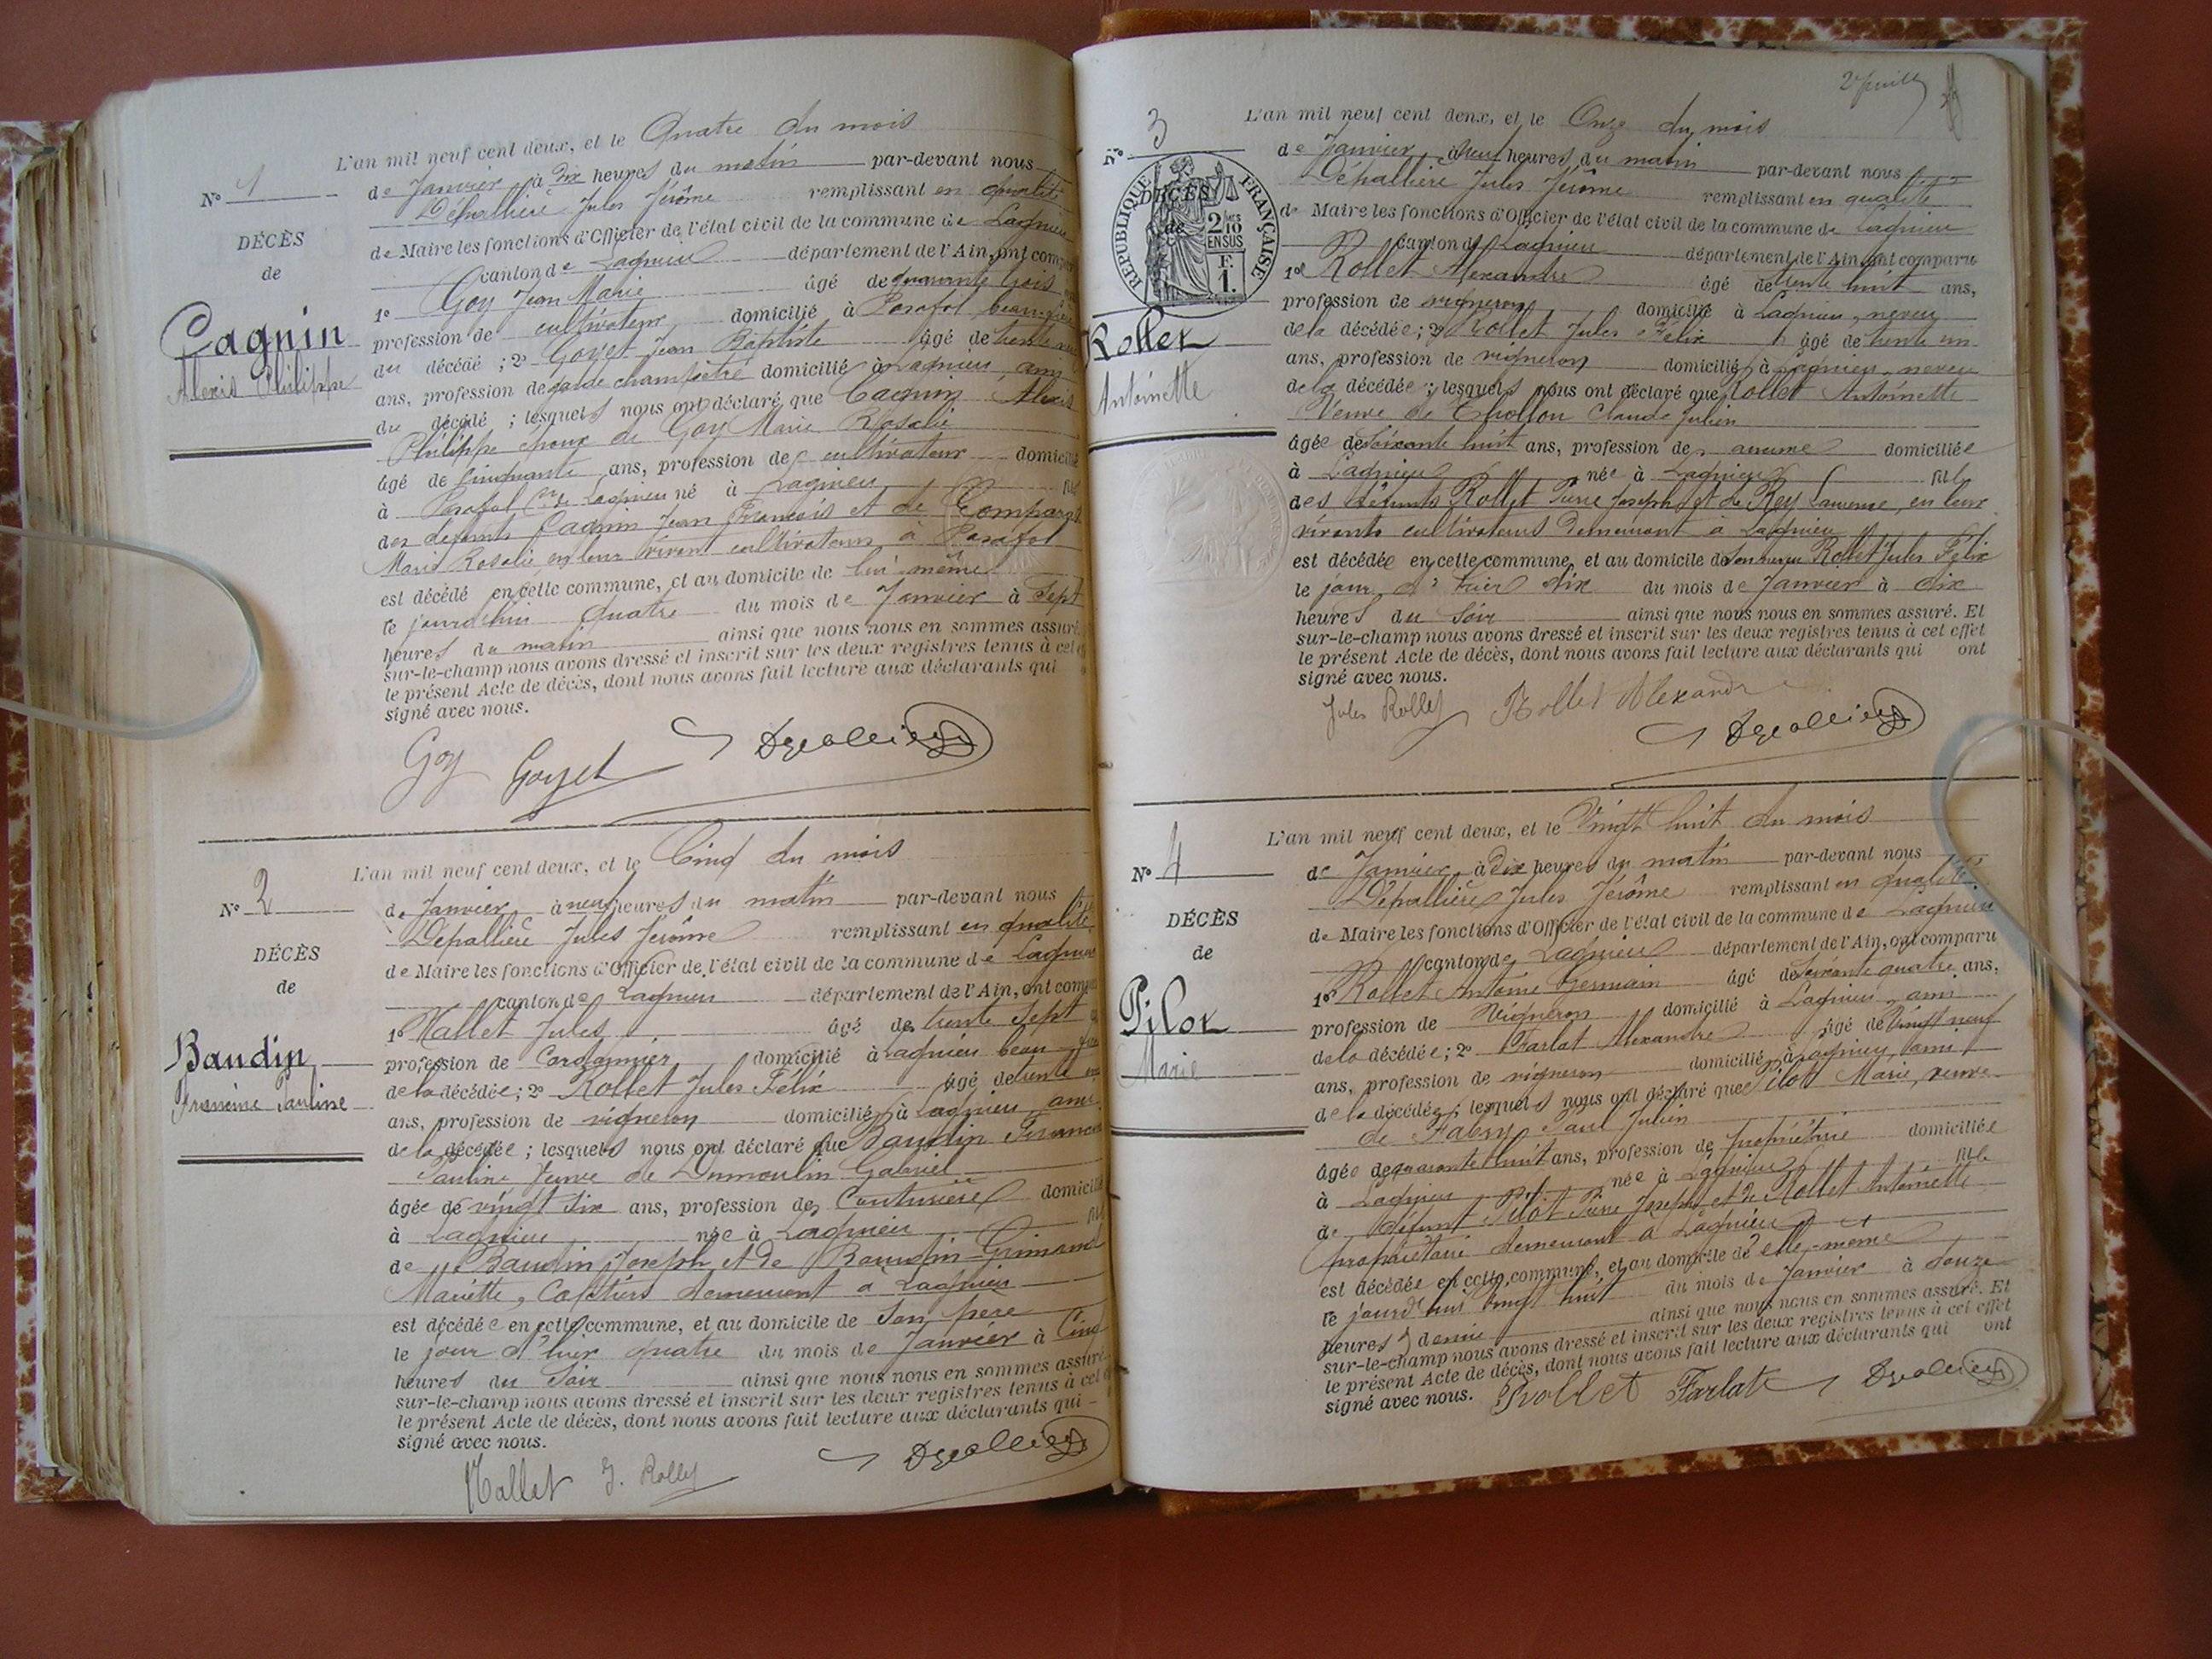 L'an mil neuf cent deux, et le Quatre du mois
de Janvier à Dix heures du matin par-devant nous
Dépallière Jules Jérôme remplissant en qualité
de Maire les fonctions d'Officier de l'état civil de la commune de Lagnieu
canton de Lagnieu département de l'Ain, ont comparu
1° Goy Jean Marie âgé de quarante trois
profession de cultivateur domicilié à Posafol beau-frère
du décédé ; 2° Goyet Jean Baptiste âgé de trente
ans, profession de garde champêtre domicilié à Lagnieu, ami
du décédé ; lesquels nous ont déclaré que Cagnin Alexis
Philippe époux de Goy Marie Rosalie
âgé de Cinquante ans, profession de cultivateur domicilié
à Posafol Cne de Lagnieu né à Lagnieu fils
des défunts Cagnin Jean François et de
Marie Rosalie en leur vivant cultivateurs à Posafol
est décédé en cette commune, et au domicile de lui même
le jourd'hui quatre du mois de Janvier à Sept
heures du matin ainsi que nous nous en sommes assuré.
sur-le-champ nous avons dressé et inscrit sur les deux registres tenus à cet
le présent Acte de décès, dont nous avons fait lecture aux déclarants qui
signé avec nous.
Goy Goyet
N° 1
DÉCÈS
de
Cagnin
Alexis Philippe
L'an mil neuf cent deux, et le Cinq du mois
de Janvier à neuf heures du matin par-devant nous
Dépallière Jules Jérôme remplissant en qualité
de Maire les fonctions d'Officier de l'état civil de la commune de Lagnieu
canton de Lagnieu département de l'Ain, ont comparu
1° Mallet Jules âgé de trente sept
profession de Cordonnier domicilié à Lagnieu beau
de la décédée ; 2° Rollet Jules Félix âgé de trente un
ans, profession de vigneron domicilié à Lagnieu, ami
de la décédée ; lesquels nous ont déclaré que Baudin
Pauline Veuve de Dumoulin Gabriel
âgée de vingt six ans, profession de Couturière domiciliée
à Lagnieu née à Lagnieu
de Baudin Joseph et de Baudin-Grimand
Mariette, demeurant à Lagnieu
est décédée en cette commune, et au domicile de Son père
le jour d'hier quatre du mois de Janvier à Cinq
heures du Soir ainsi que nous nous en sommes assuré.
sur-le-champ nous avons dressé et inscrit sur les deux registres tenus à cet
le présent Acte de décès, dont nous avons fait lecture aux déclarants qui
signé avec nous.
Mallet J. Rollet
N° 2
DÉCÈS
de
Baudin
Francine Pauline
L'an mil neuf cent deux, et le Onze du mois
de Janvier à neuf heures du matin par-devant nous
Dépallière Jules Jérôme remplissant en qualité
de Maire les fonctions d'Officier de l'état civil de la commune de Lagnieu
canton de Lagnieu département de l'Ain ont comparu
1° Rollet Alexandre âgé de trente huit ans,
profession de vigneron domicilié à Lagnieu, neveu
de la décédée ; 2° Rollet Jules Félix âgé de trente un
ans, profession de vigneron domicilié à Lagnieu, neveu
de la décédée ; lesquels nous ont déclaré que Rollet Antoinette
Veuve de Thollon Claude Julien
âgée de Soixante huit ans, profession de aucune domiciliée
à Lagnieu née à Lagnieu fille
des défunts Rollet Pierre Joseph et de Rey Laurence, en leur
vivants cultivateurs demeurant à Lagnieu
est décédée en cette commune, et au domicile de Son neveu Rollet Jules Félix
le jour d'hier dix du mois de Janvier à dix
heures du Soir ainsi que nous nous en sommes assuré. Et
sur-le-champ nous avons dressé et inscrit sur les deux registres tenus à cet effet
le présent Acte de décès, dont nous avons fait lecture aux déclarants qui ont
signé avec nous.
Jules Rollet Rollet Alexandre
N° 3
DÉCÈS
de
RÉPUBLIQUE FRANÇAISE
2/10 EN SUS
F.
1.
Rollet
Antoinette
L'an mil neuf cent deux, et le Vingt huit du mois
de Janvier à Dix heures du matin par-devant nous
Dépallière Jules Jérôme remplissant en qualité
de Maire les fonctions d'Officier de l'état civil de la commune de Lagnieu
canton de Lagnieu département de l'Ain, ont comparu
1° Rollet Antoine Germain âgé de Soixante quatre ans,
profession de Vigneron domicilié à Lagnieu, ami
de la décédée ; 2° Farlat Alexandre âgé de Vingt neuf
ans, profession de vigneron domicilié à Lagnieu, ami
de la décédée ; lesquels nous ont déclaré que Pilot Marie, veuve
de Fabry Paul Julien
âgée de quarante huit ans, profession de propriétaire domiciliée
à Lagnieu née à Lagnieu fille
de défunt Pilot Pierre Joseph et de Rollet Antoinette
propriétaire demeurant à Lagnieu
est décédée en cette commune, et au domicile d'elle-même
le jourd'hui vingt huit du mois de Janvier à douze
heures & demie ainsi que nous nous en sommes assuré. Et
sur-le-champ nous avons dressé et inscrit sur les deux registres tenus à cet effet
le présent Acte de décès, dont nous avons fait lecture aux déclarants qui ont
signé avec nous. Rollet Farlat
N° 4
DÉCÈS
de
Pilot
Marie